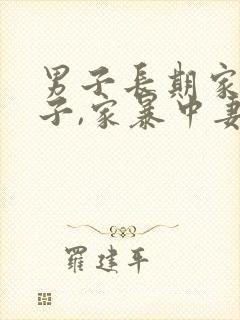 男子長期家
子,家暴中妻
羅建平